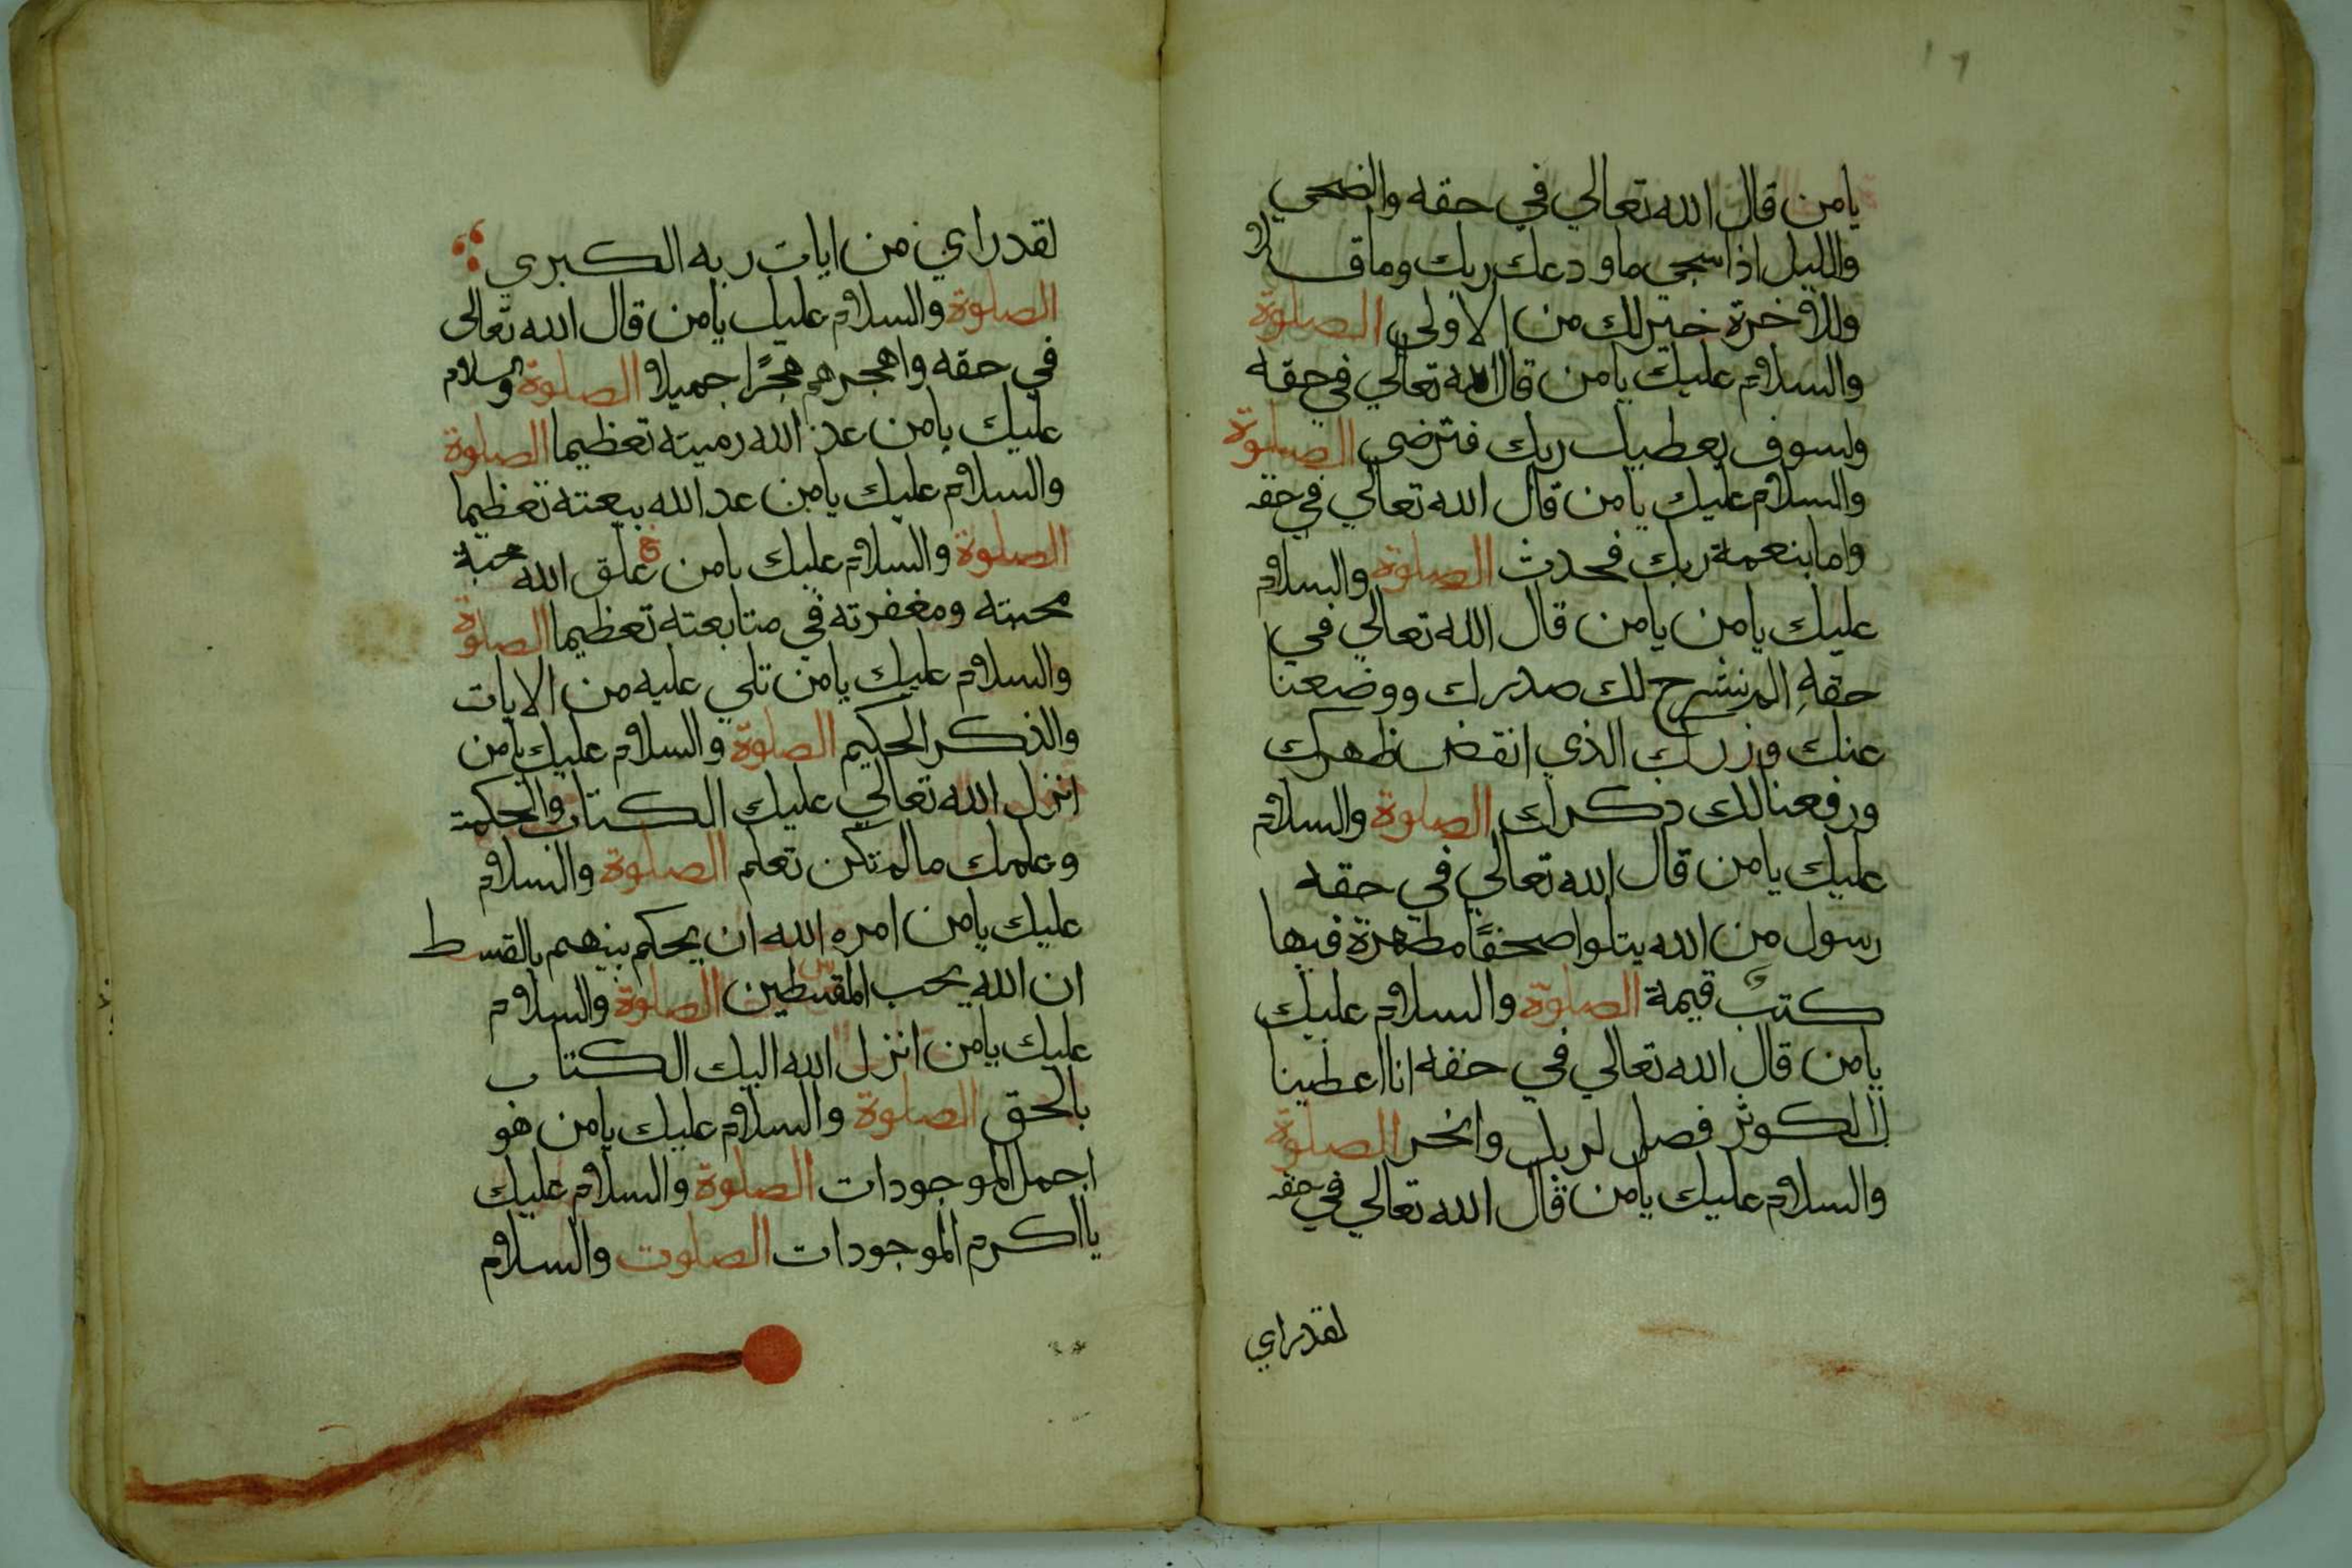 يامن قال الله تعالي في حقه والضحي
والليل اذا سجي ماودعك ربك وماقلا
والاخرة خير لك من الاولي الصلوة
والسلام عليك يامن قال الله تعالي في حقه
ولسوف يعطيك ربك فترضي الصلوة
والسلام عليك يامن قال الله تعالي في حقه
واما بنعمة ربك فحدث الصلوة والسلام
عليك يامن يامن قال الله تعالي في
حقه الم نشرح لك صدرك ووضعنا
عنك وزرك الذي انقض ظهرك
ورفعنا لك ذكرك الصلوة والسلام
عليك يامن قال الله تعالي في حقه
رسول من الله يتلوا صحفًا مطهرة فيها
كتب قيمة الصلوة والسلام عليك
يامن قال الله تعالي في حقه انا اعطينا
ك الكوثر فصل لربك وانحر الصلوة
والسلام عليك يامن قال الله تعالي في حقه
لقد راي
لقد راي من ايات ربه الكبري
الصلوة والسلام عليك يامن قال الله تعالى
في حقه واهجرهم هجرًا جميلا الصلوة والسلام
عليك يامن عد الله رميته تعظيما الصلوة
والسلام عليك يامن عد الله بيعته تعظيما
الصلوة والسلام عليك يامن علق الله محبة
محبته ومغفرته في متابعته تعظيما الصلوة
والسلام عليك يامن تلي عليه من الايات
والذكر الحكيم الصلوة والسلام عليك يامن
انزل الله تعالي عليك الكتاب والحكمة
وعلمك مالم تكن تعلم الصلوة والسلام
عليك يامن امره الله ان يحكم بينهم بالقسط
ان الله يحب المقسطين الصلوة والسلام
عليك يامن انزل الله اليك الكتاب
بالحق الصلوة والسلام عليك يامن هو
اجمل الموجودات الصلوة والسلام عليك
يااكرم الموجودات الصلوت والسلام